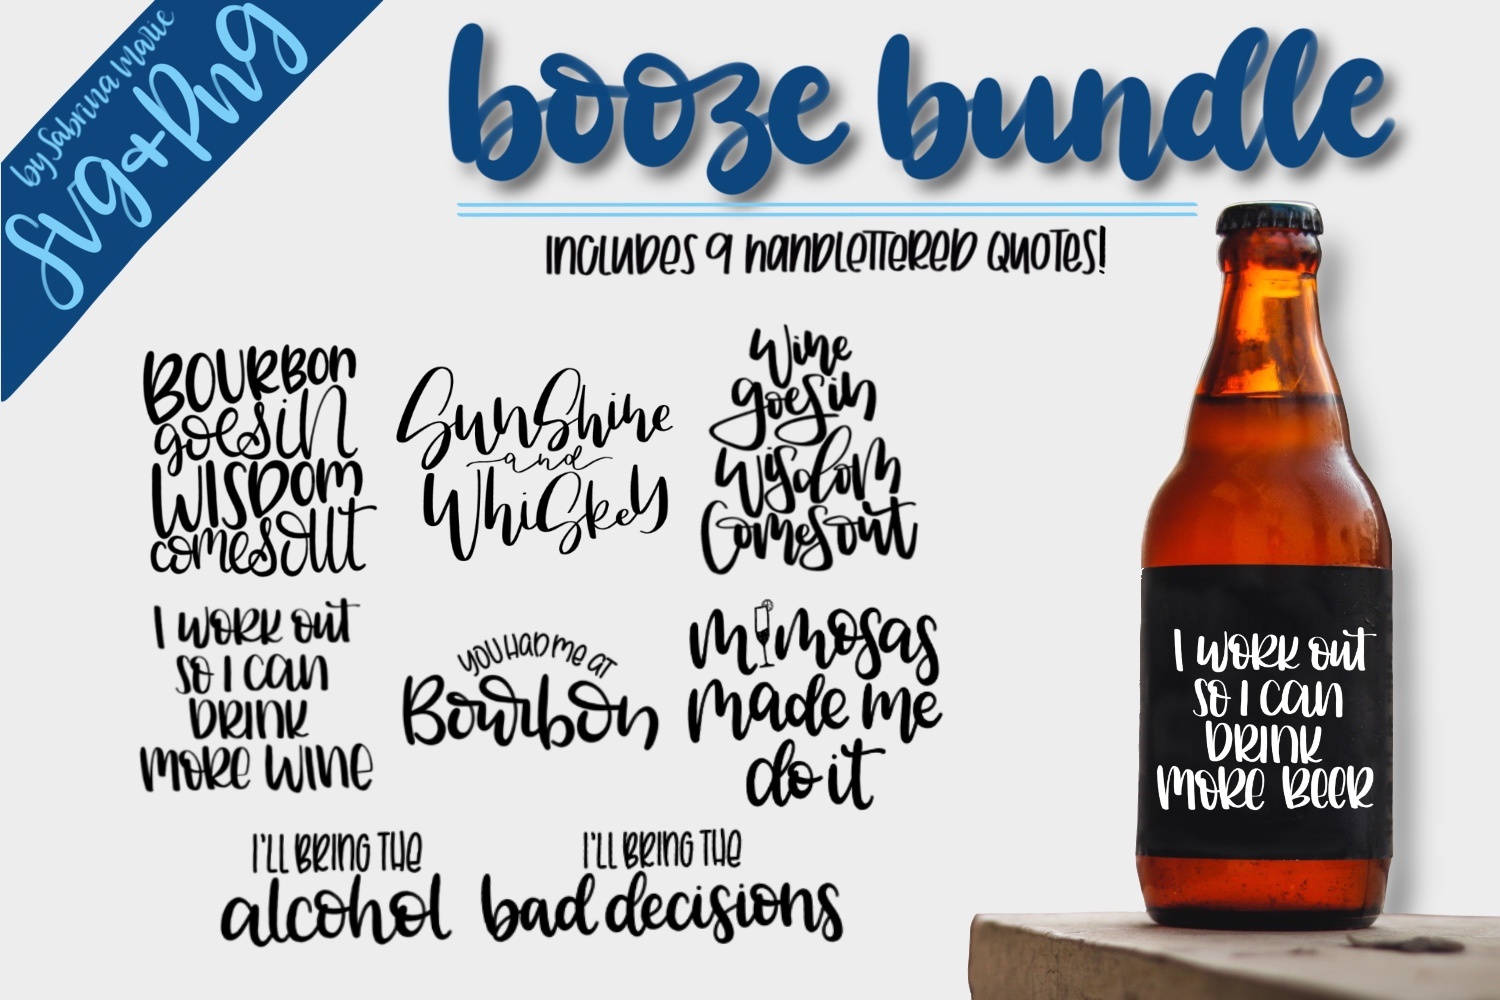 by Sabrina Marie
SVG+PNG
booze bundle
INCLUDES 9 HANDLETTERED QUOTES!
BOURBON
goes in
WISDOM
comes out
Sunshine
and
Whiskey
Wine
goes in
Wisdom
Comes out
I WORK out
so I can
DRINK
MORE WINE
YOU HAD ME AT
Bourbon
mimosas
made me
do it
I'LL BRING THE
alcohol
I'LL BRING THE
bad decisions
I WORK out
so I can
DRINK
MORE BEER